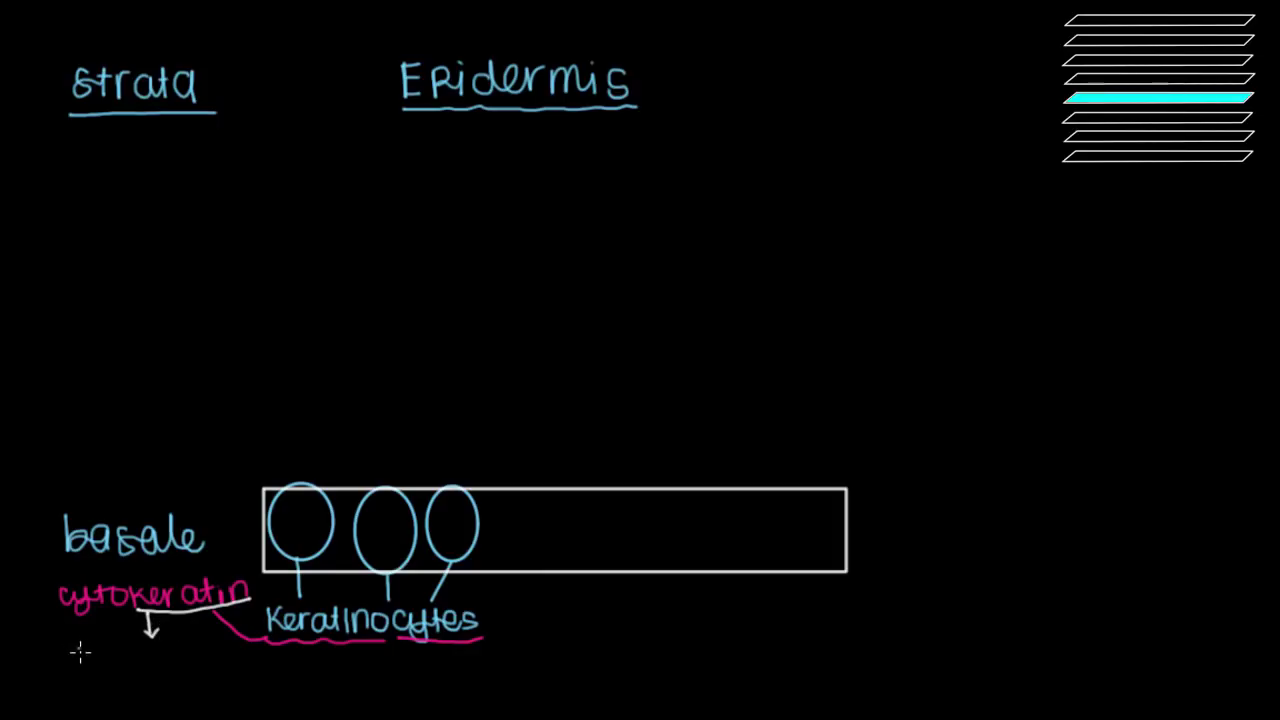 Strata
Epidermis
basale
cytokeratin
Keratinocytes